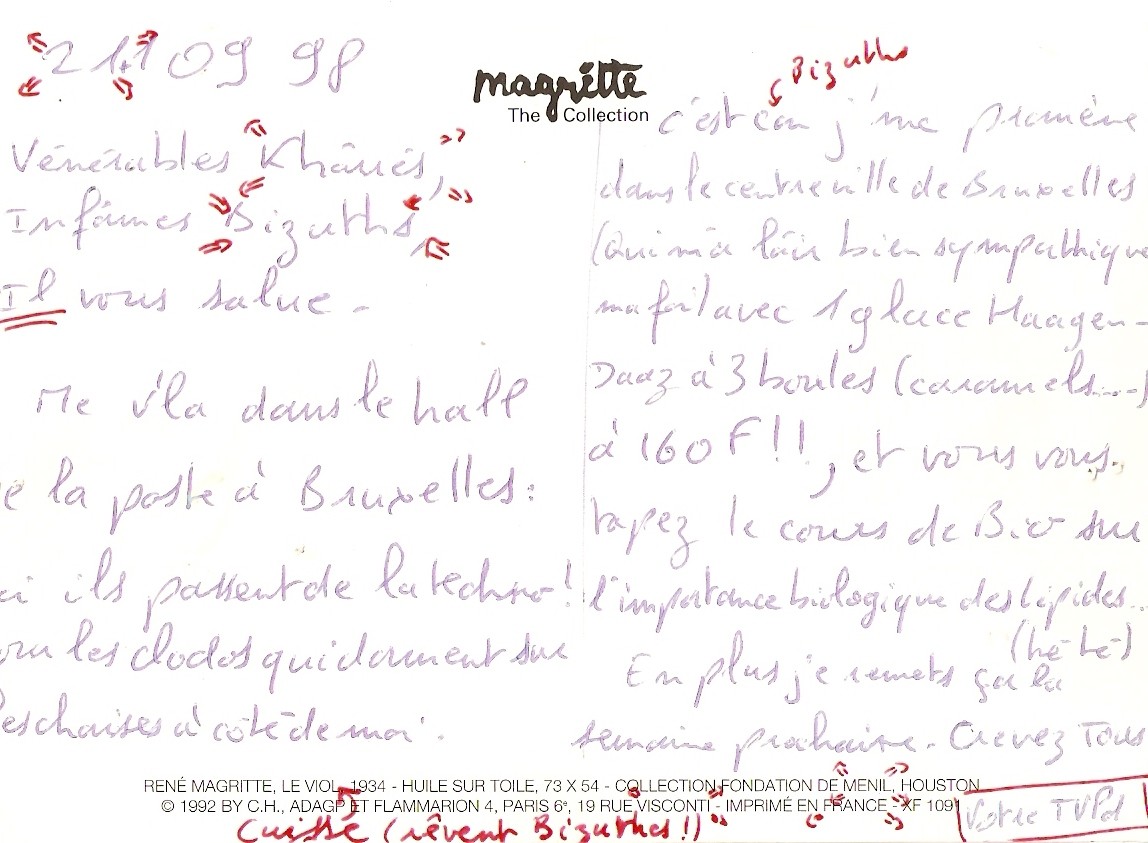 21.1 09 98
Vénérables Khârrés,
Infâmes Bizuths,
Il vous salue.
Me v'la dans le hall
e la poste à Bruxelles :
ci ils passent de la techno !
our les clodos qui dorment sur
es chaises à côté de moi.
magritte
The Collection
Bizuths
c'est con j'me promène
dans le centre ville de Bruxelles
(Qui m'a l'air bien sympathique
ma foi) avec 1 glace Haagen-
Daaz à 3 boules (caramels....)
à 160 F!!, et vous vous
tapez le cours de Bio sur
l'importance biologique des lipides..
(hé hé)
En plus je remets ça la
semaine prochaine. Crevez Tous
RENÉ MAGRITTE, LE VIOL, 1934 - HUILE SUR TOILE, 73 X 54 - COLLECTION FONDATION DE MENIL, HOUSTON
© 1992 BY C.H., ADAGP ET FLAMMARION 4, PARIS 6e, 19 RUE VISCONTI - IMPRIMÉ EN FRANCE - XF 1091
Votre TVPd
Cuisse (rêvent Bizuthes !)